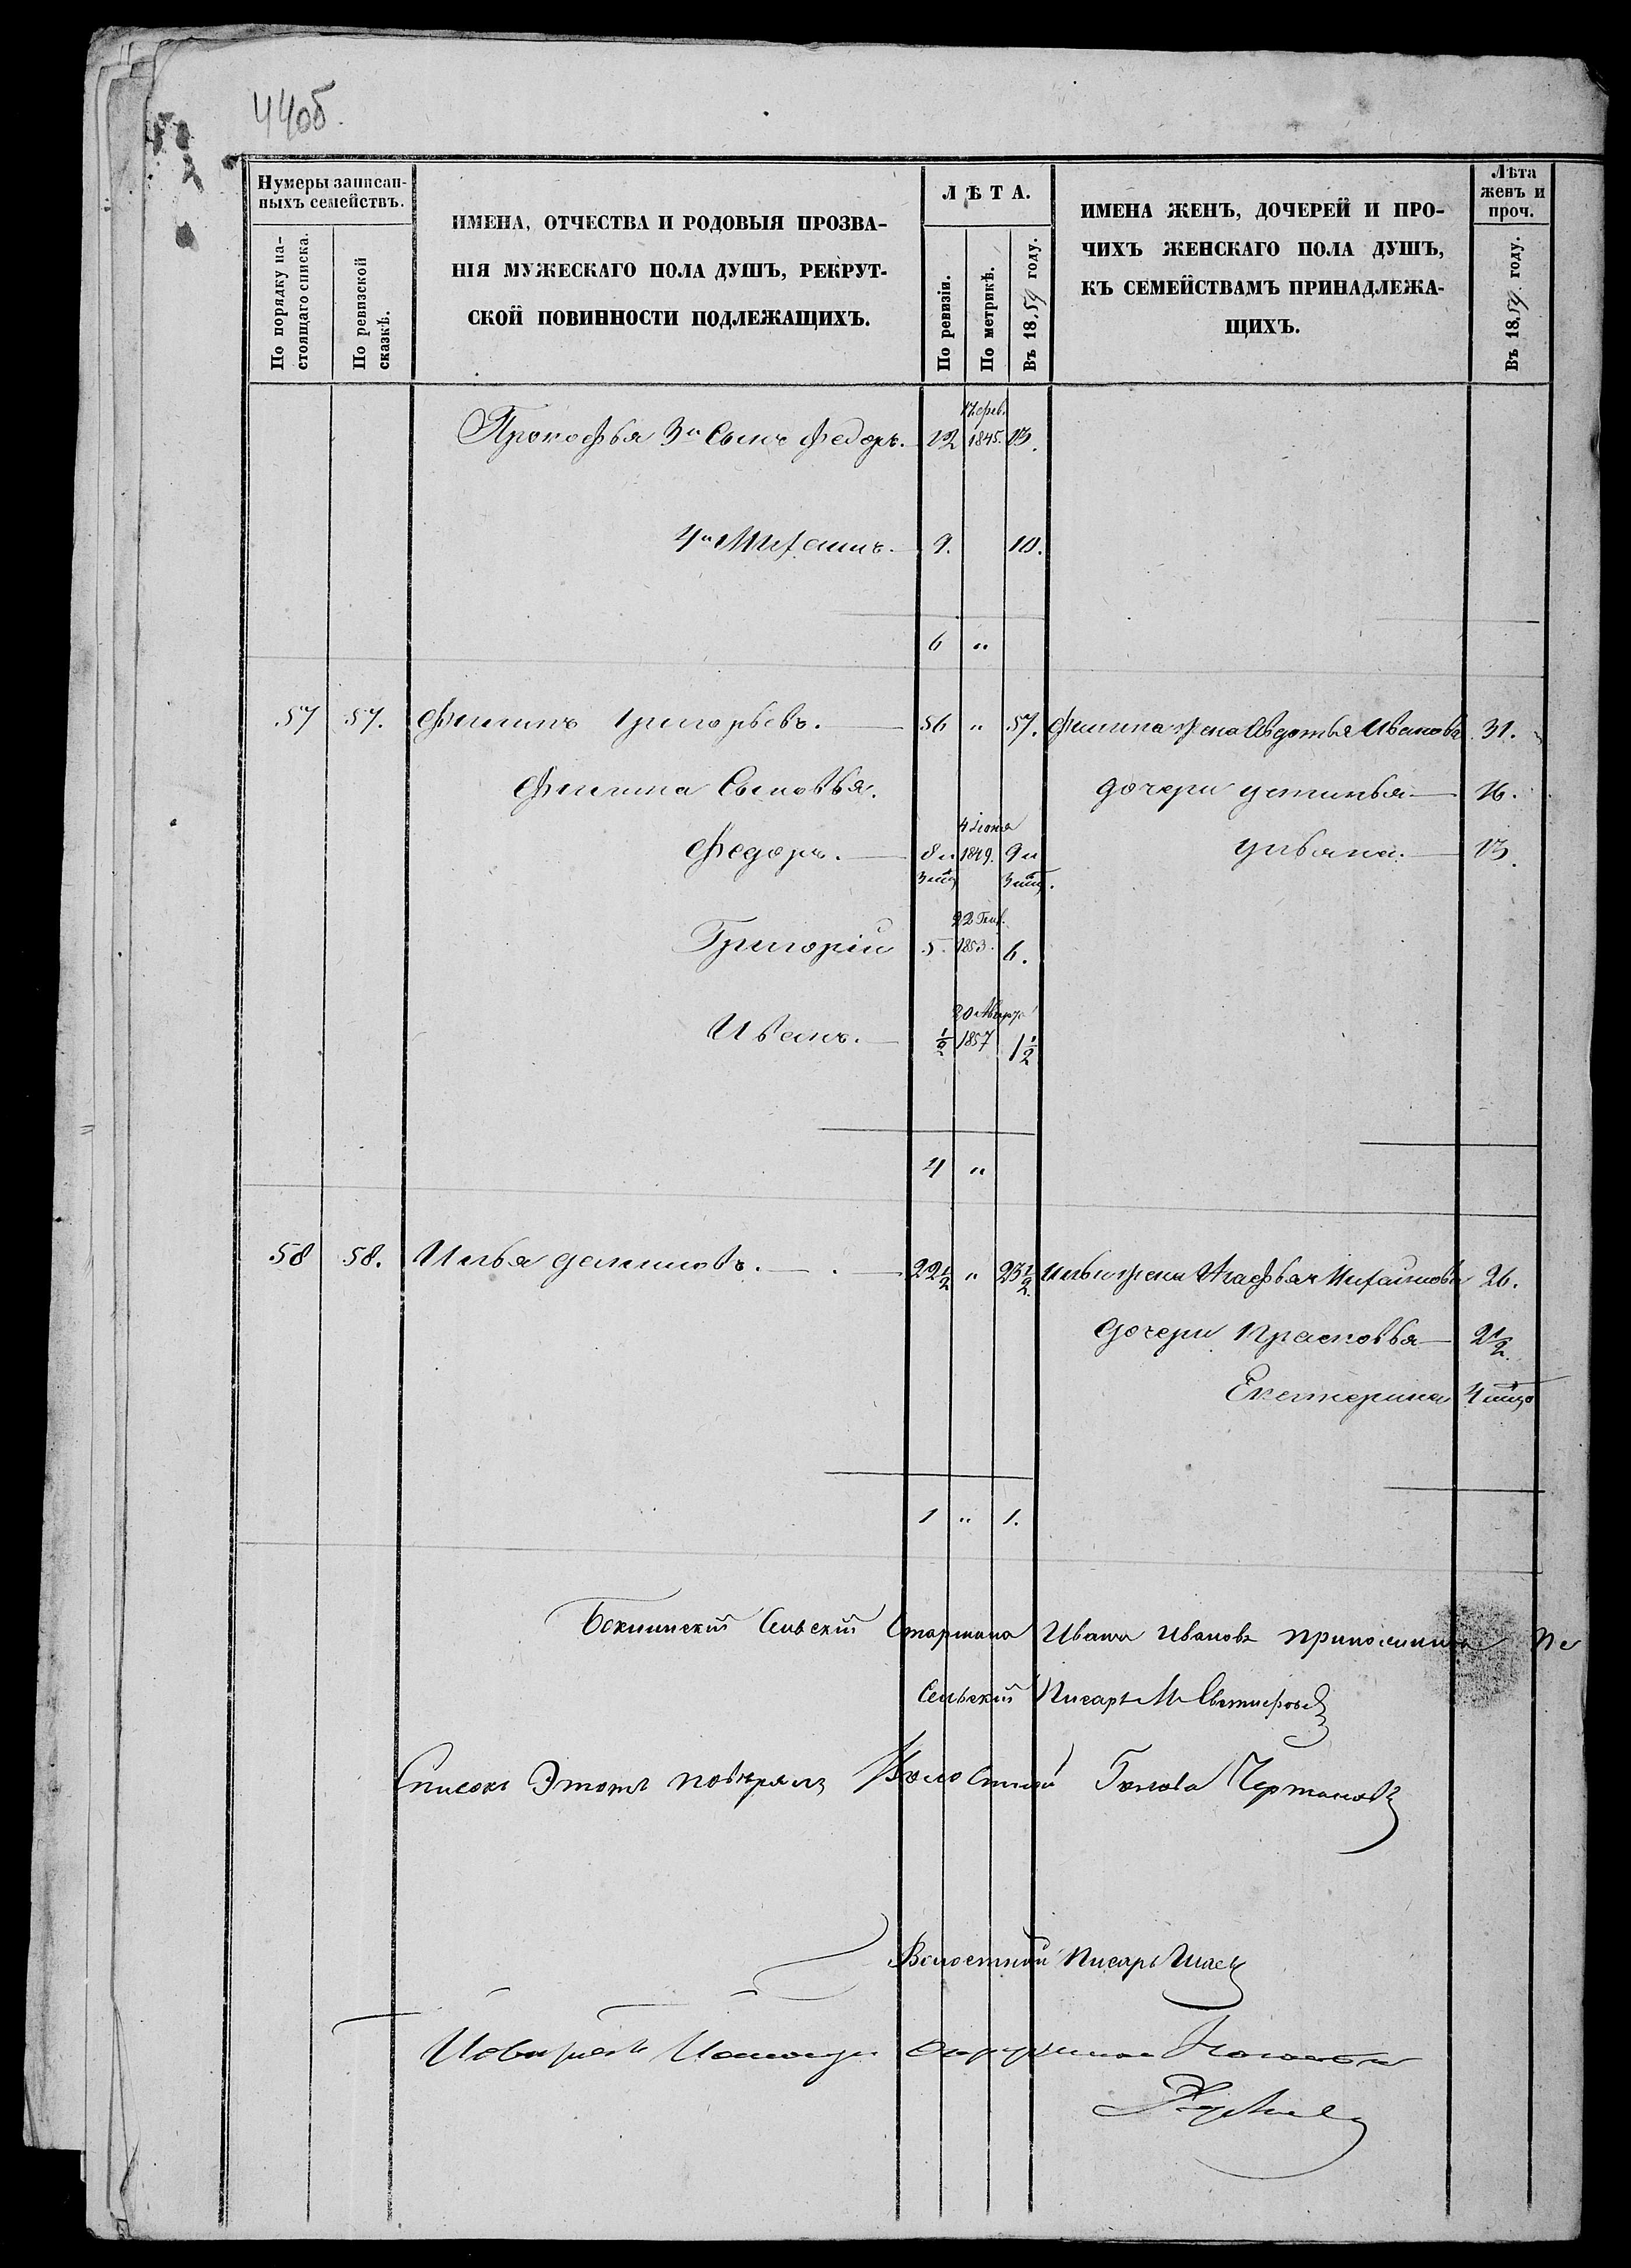 44об.
Нумеры записан-
ныхъ семействъ.
По порядку на-
стоящаго списка.
По ревизской
сказкѣ.
ИМЕНА, ОТЧЕСТВА И РОДОВЫЯ ПРОЗВА-
НІЯ МУЖЕСКАГО ПОЛА ДУШЪ, РЕКРУТ-
СКОЙ ПОВИННОСТИ ПОДЛЕЖАЩИХЪ.
ЛѢТА.
По ревизіи.
По метрикѣ.
Въ 1859 году.
ИМЕНА ЖЕНЪ, ДОЧЕРЕЙ И ПРО-
ЧИХЪ ЖЕНСКАГО ПОЛА ДУШЪ,
КЪ СЕМЕЙСТВАМЪ ПРИНАДЛЕЖА-
ЩИХЪ.
Лѣта
женъ и
проч.
Въ 1859 году.
17 фев.
Прокофья 3й Сынъ Федоръ. 12 1845. 13.
4й Михаилъ. 9. 10.
6 "
57 57. Филипъ Григорьевъ. 56 " 57. Филипа жена Авдотья Иванова 31.
Филипа Сыновья. дочери Устинья 16.
4 Іюня
Федоръ. 8 и 1849. 9 и Ульяна. 13.
3 мц. 3 мц.
22 Генв.
Григорій 5. 1853. 6.
20 Августа
Иванъ. ½ 1857 1½
4 "
58 58. Илья Даниловъ. 22½ " 23½ Ильи жена Агафья Михаилова 26.
дочери Прасковья 2½
Екатерина 4 мцо
1 " 1.
Сельскій Старшина Иванъ Ивановъ
Сельскій Писарь М
Списокъ Этотъ повѣрялъ Волостной Голова Чертановъ
Волостной Писарь